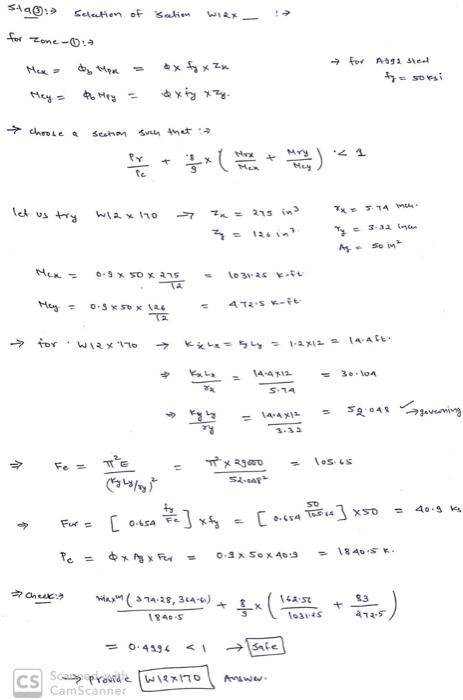 Step③:→ Selection of Section W12x__ :→
for Zone-①:→
Mcx = ϕb Mpx = ϕ x fy x Zx → for A992 steel
Mcy = ϕb Mpy = ϕ x fy x Zy. fy = 50 ksi
→ choose a section such that :→
Pr/Pc + 8/9 x ( Mrx/Mcx + Mry/Mcy ) < 1
let us try W12 x 170 → Zx = 275 in³ rx = 5.74 inch.
Zy = 126 in³. ry = 3.32 inch
Ag = 50 in²
Mcx = 0.9 x 50 x 275/12 = 1031.25 k-ft
Mcy = 0.9 x 50 x 126/12 = 472.5 k-ft
→ for W12 x 170 → KxLx = KyLy = 1.2 x 12 = 14.4 ft.
⇒ KxLx/rx = 14.4 x 12/5.74 = 30.104
⇒ KyLy/ry = 14.4 x 12/3.32 = 52.048 → governing
⇒ Fe = π²E/(KyLy/ry)² = π² x 29000/52.048² = 105.65
⇒ Fcr = [ 0.658 fy/Fe ] x fy = [ 0.658 50/105.65 ] x 50 = 40.9 ks
Pc = ϕ x Ag x Fcr = 0.9 x 50 x 40.9 = 1840.5 K.
⇒ check:→ max^m ( 374.28, 364.61 )/1840.5 + 8/9 x ( 162.56/1031.25 + 83/472.5 )
= 0.4996 < 1 → Safe
→ Provide W12X170 Answer.
CS Scanned with
CamScanner